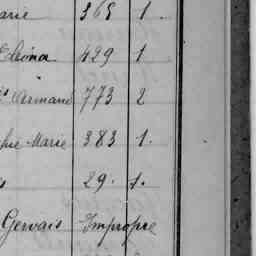 arie 365 1.
Eléona 429 1
Armand 773 2
hie Marie 383 1.
s 29. 1.
Gervais Impropre